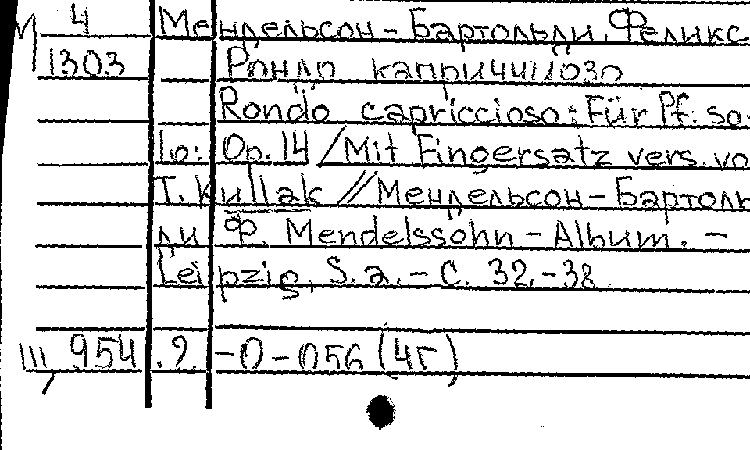 М 4 Мендельсон-Бартольди, Феликс
1303 Рондо каприччиозо
Rondo capriccioso: Für Pf. so-
lo: Op. 14 / Mit Fingersatz vers. vo
T. Kullak // Мендельсон-Бартоль-
ди Ф. Mendelssohn-Album. -
Leipzig, S. a. - С. 32.-38
III, 954.2.-0-056 (4Г)